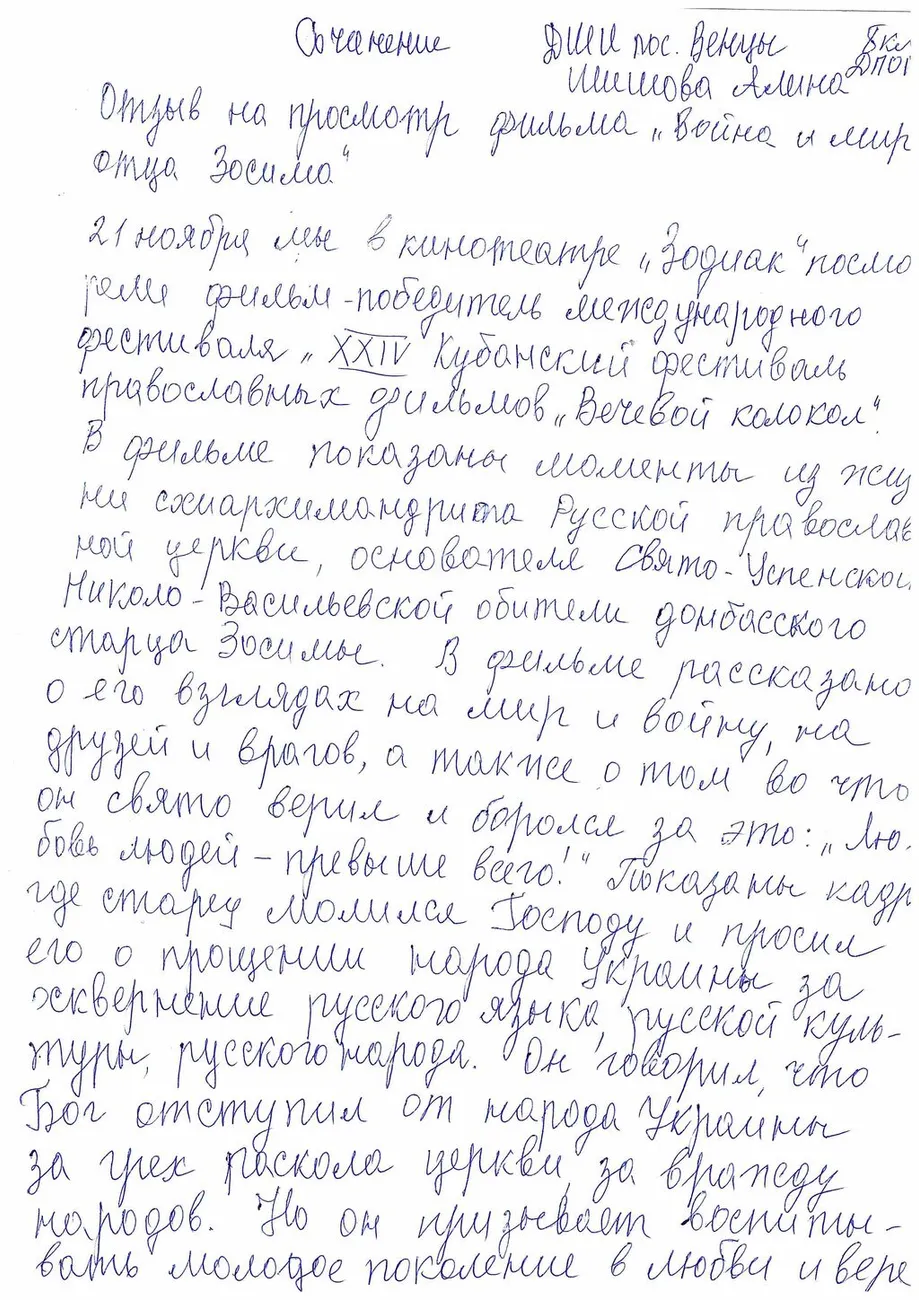 Сочанение ДШИ пос. Венцы 8кл
Шишова Алина ДПОП
Отзыв на просмотр фильма „Война и мир
отца Зосима"
21 ноября мы в кинотеатре „Зодиак" посмо
рели фильм-победитель международного
фестиваля „XXIV Кубанский фестиваль
православных фильмов „Вечевой колокол".
В фильме показаны моменты из жиз
ни схиархимандрита Русской православ
ной церкви, основателя Свято-Успенской
Николо-Васильевской обители донбасского
старца Зосимы. В фильме рассказано
о его взглядах на мир и войну, на
друзей и врагов, а также о том во что
он свято верил и боролся за это: „Лю-
бовь людей – превыше всего!" Показаны кадр
где старец молился Господу и просил
его о прощении народа Украины за
осквернение русского языка, русской куль-
туры, русского народа. Он говорил, что
Бог отступил от народа Украины
за грех раскола церкви, за вражду
народов. Но он призывает воспиты-
вать молодое поколение в любви и вере